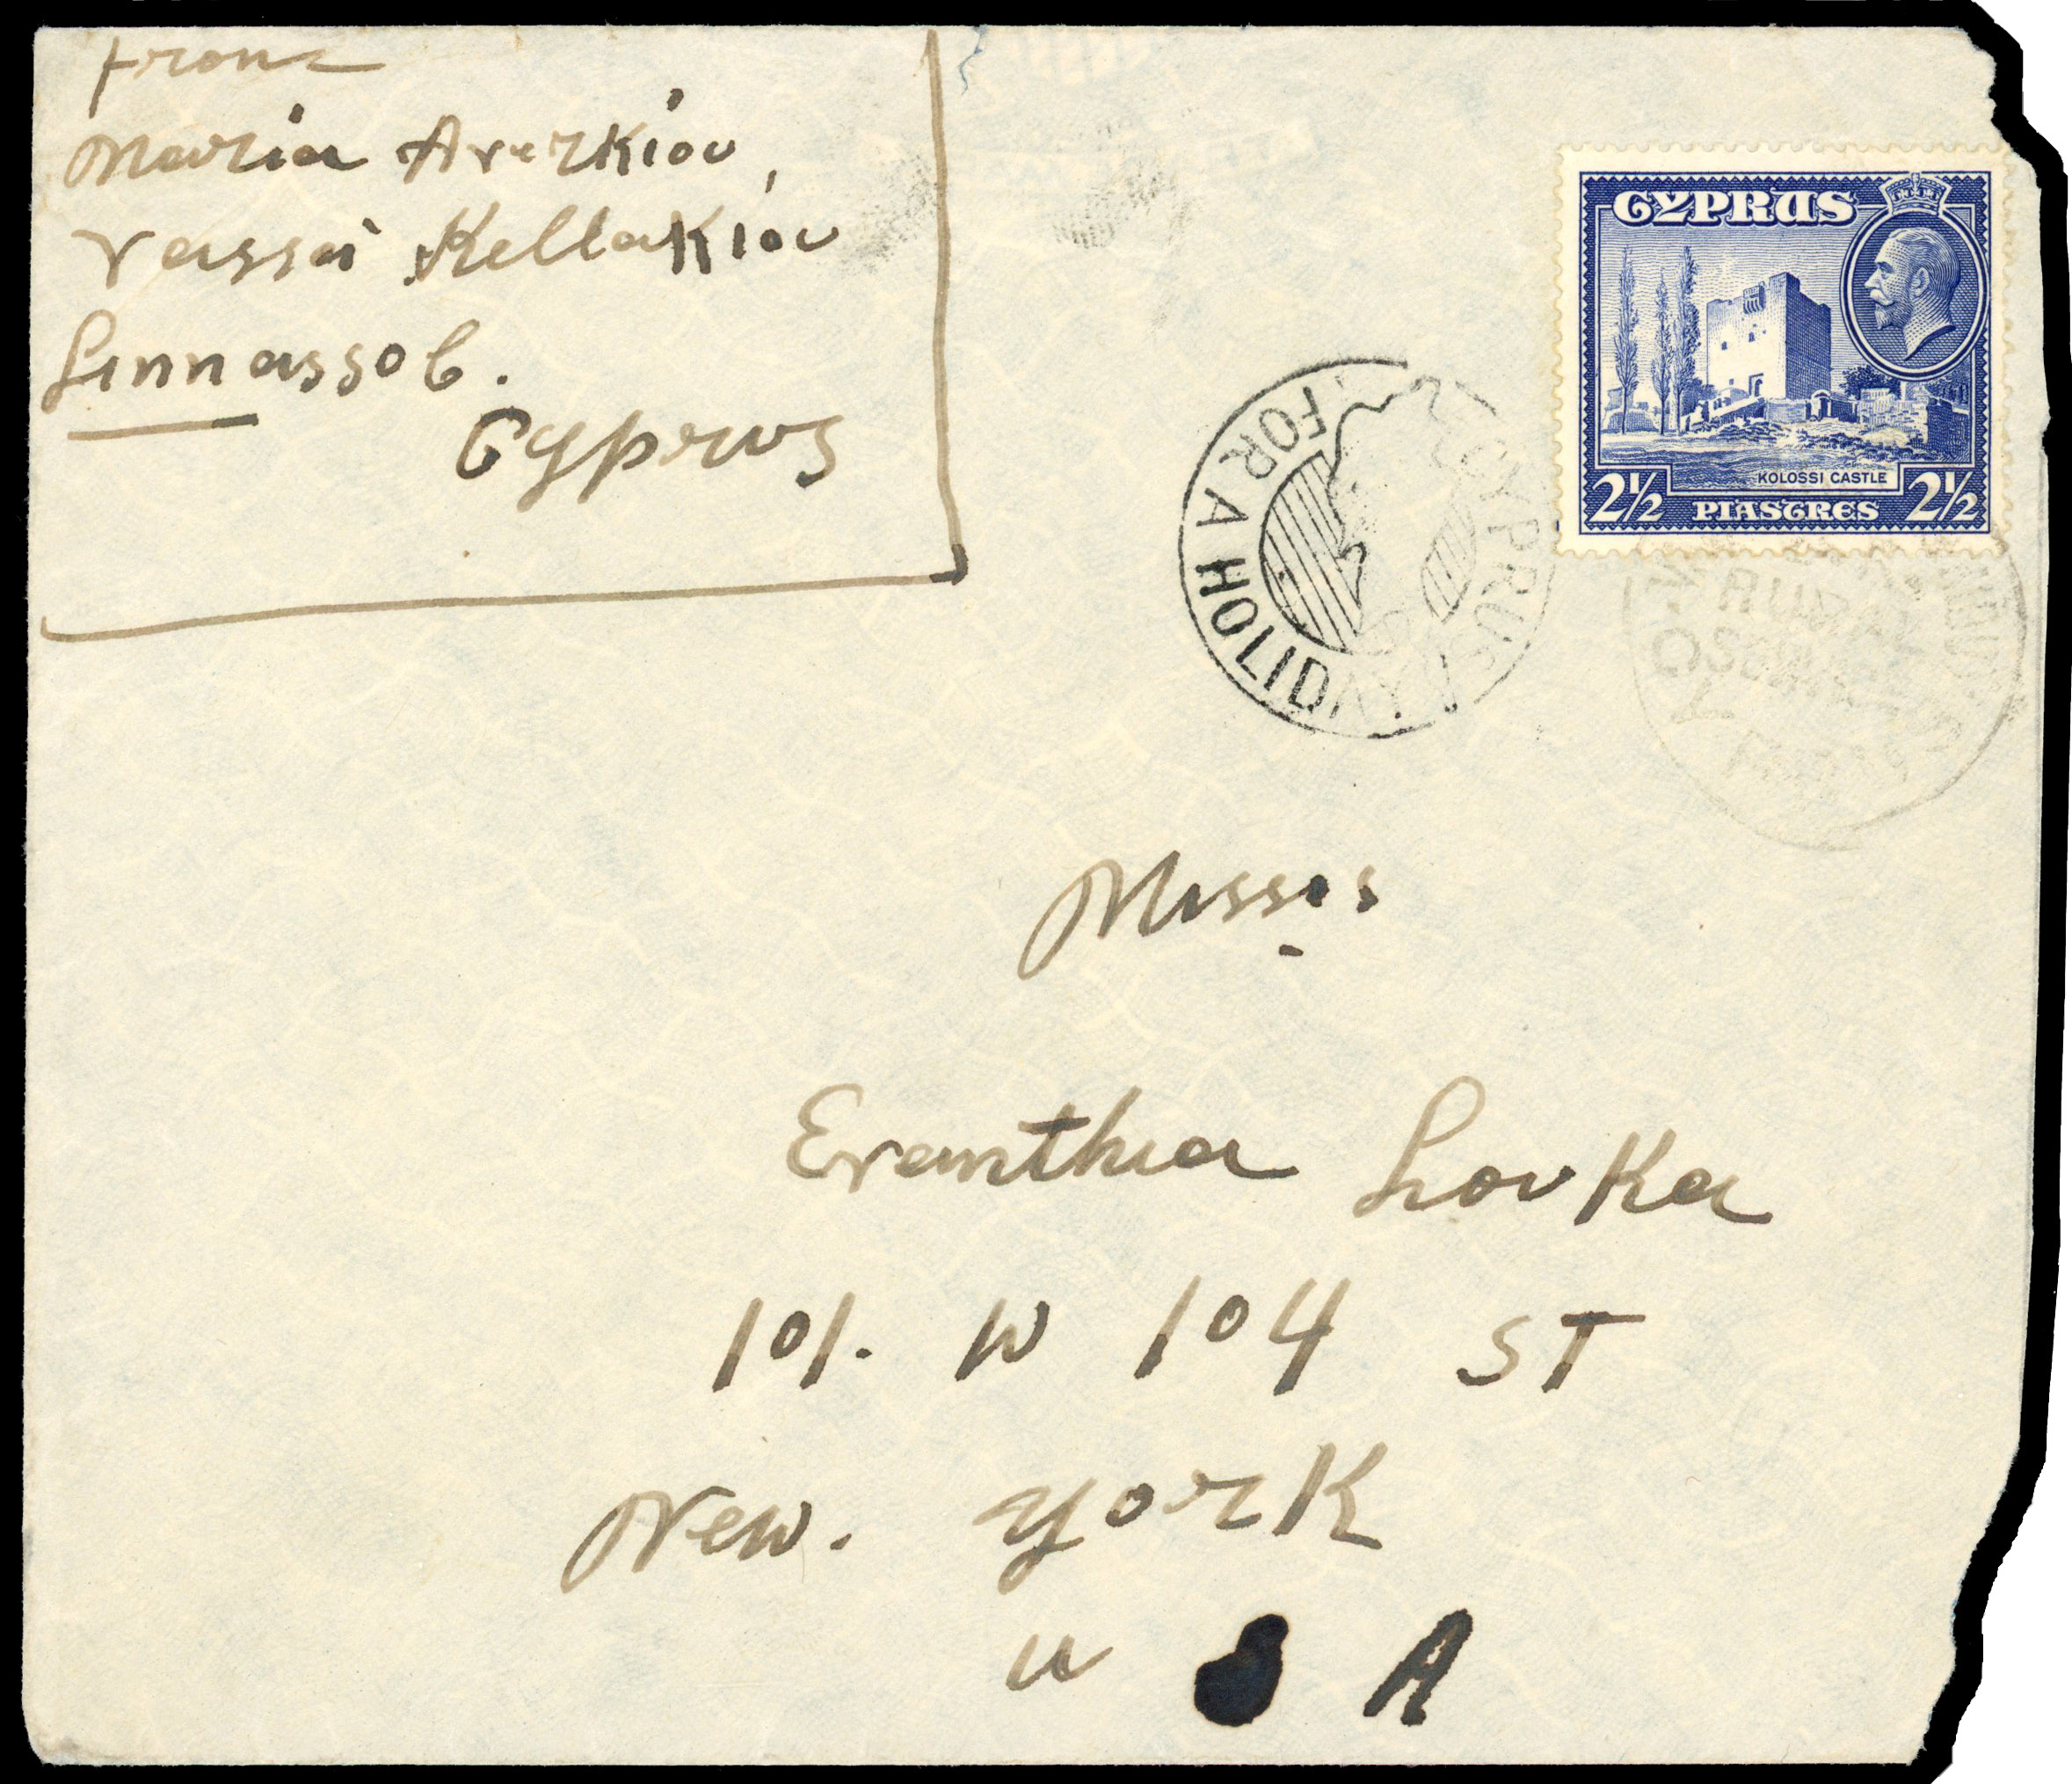 from
Maria Averkiou,
Vassa Kellakiou
Limnassol.
Cyprus
CYPRUS
KOLOSSI CASTLE
2½ PIASTRES 2½
CYPRUS
FOR A HOLIDAY
Missis
Evanthia Louka
101. W 104 ST
New. York
U S A